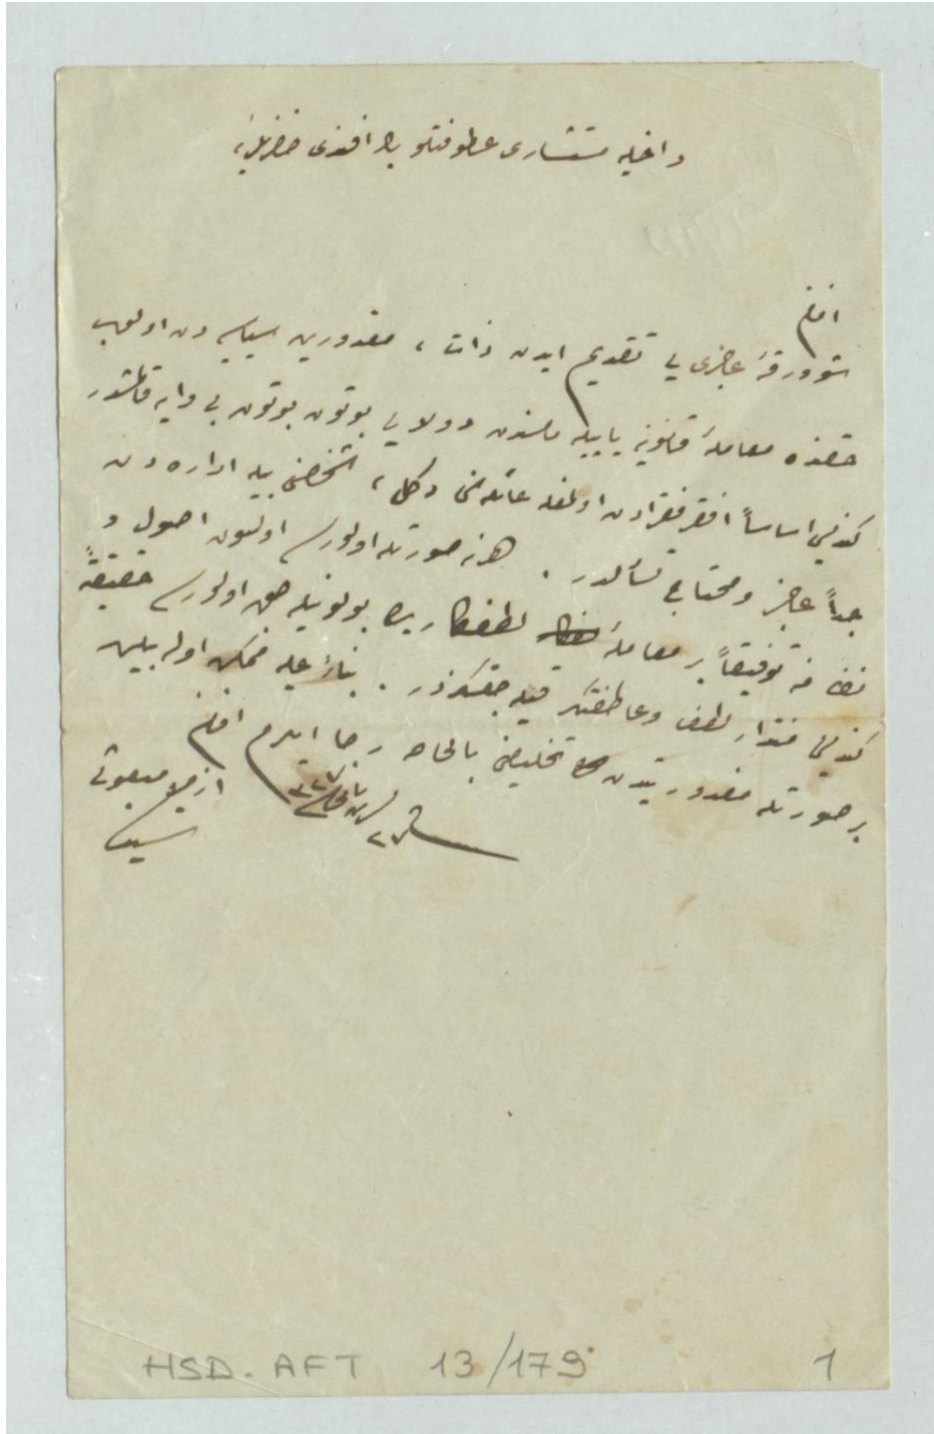 داخلیه مستشاری عطوفتلو بك افندی حضرتلرینه
افندم
شو ورقهٔ عاجزی یی تقدیم ایدن ذات ، مغدورین سیاسیه دن اولوب
حقنده معاملهٔ قانونیه یاپیله مامسندن دولایی بوتون بوتون بی وایه قالمشدر
کندیسی اساساً افقر فقرادن اولمغله عائله سنی دکل ، شخصنی بیله اداره دن
جداً عاجز و محتاج تسألدر . هر نه صورتله اولورسه اولسون اصول و
نظامنه توفیقاً بر معاملهٔ لطفکاریده بولونیله جق اولورسه حقیقةً
کندیسی منتدار لطف و عاطفتکز قیله جقسکزدر . بناءً علیه ممکن اوله بیلن
بر صورتله مغدوریتدن تخلیصنی بالخاصه رجا ایدرم افندم
ازمیر مبعوثی
سید
HSD. AFT 13/179 1